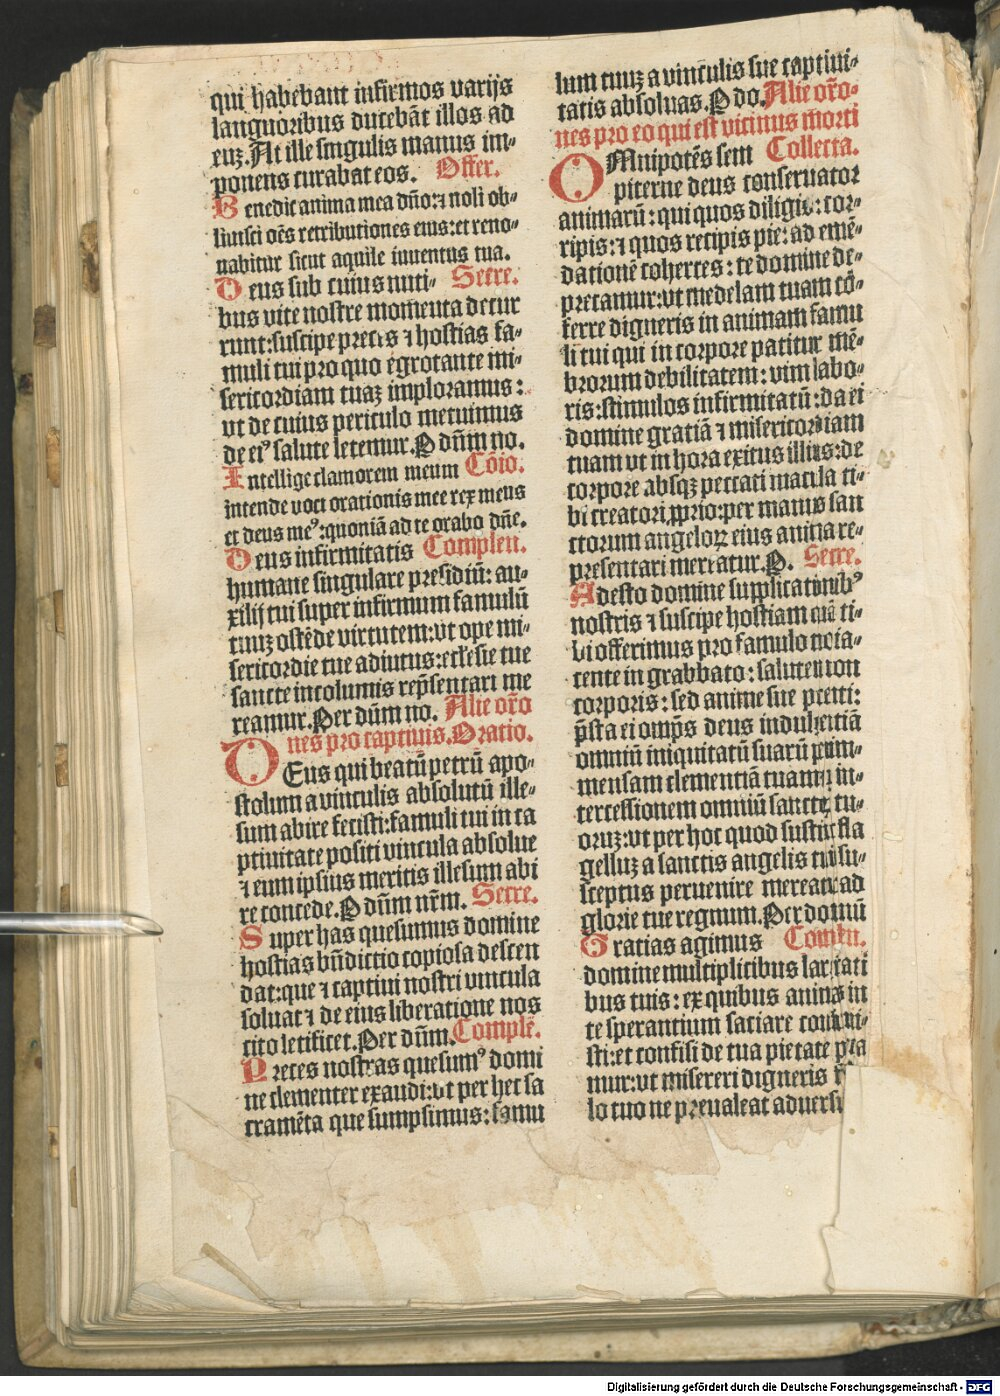 qui habebant infirmos varijs
languoribus ducebāt illos ad
euꝫ. At ille singulis manus im-
ponens curabat eos. Offer.
Benedic anima mea dño: ⁊ noli ob-
liuisci oēs retributiones eius: et reno-
uabitur sicut aquile iuuentus tua.
Deus sub cuius nuti- Secre.
bus vite nostre momenta decur
runt: suscipe preces ⁊ hostias fa-
muli tui pro quo egrotante mi-
sericordiam tuaꝫ imploramus:
vt de cuius periculo metuimus
de eiꝰ salute letemur. P dñm no.
Intellige clamorem meum Cōio.
intende voci orationis mee rex meus
et deus meꝰ: quoniā ad te orabo dñe.
Deus infirmitatis Complen.
humane singulare presidiū: au-
xilij tui super infirmum famulū
tuuꝫ ostēde virtutem: vt ope mi-
sericordie tue adiutus: ecclesie tue
sancte incolumis repsentari me
reamur. Per dūm no. Alie oro
nes pro captiuis. Oratio.
DEus qui beatū petrū apo-
stolum a vinculis absolutū ille-
sum abire fecisti: famuli tui in ca
ptiuitate positi vincula absolue
⁊ eum ipsius meritis illesum abi
re concede. P dūm nrm. Secre.
Super has quesumus domine
hostias bndictio copiosa descen
dat: que ⁊ captiui nostri vincula
soluat ⁊ de eius liberatione nos
cito letificet. Per dūm. Complē.
Preces nostras quesumꝰ domi
ne clementer exaudi: vt per hec sa
cramēta que sumpsimus: famu
lum tuuꝫ a vinculis sue captiui-
tatis absoluas. P do. Alie oro-
nes pro eo qui est vicinus morti
OMnipotēs sem Collecta.
piterne deus conseruator
animarū: qui quos diligis: cor-
ripis: ⁊ quos recipis pie: ad emē-
dationē coherces: te domine de-
precamur: vt medelam tuam cō-
ferre digneris in animam famu
li tui qui in corpore patitur mē-
brorum debilitatem: vim labo-
ris: stimulos infirmitatū: da ei
domine gratiā ⁊ misericordiam
tuam vt in hora exitus illius: de
corpore absqꝫ peccati macula ti-
bi creatori ꝓprio: per manus san
ctorum angeloꝝ eius anima re-
presentari mereatur. P. Secre.
Adesto domine supplicationibꝰ
nostris ⁊ suscipe hostiam quā ti-
bi offerimus pro famulo tuo ia-
cente in grabbato: salutem non
corporis: sed anime sue petenti:
psta ei omps deus indulgentiā
omniū iniquitatū suarū propter im-
mensam clementiā tuam ⁊ in-
tercessionem omniū sanctoꝝ tu-
oruꝫ: vt per hoc quod sustinet fla
gelluꝫ a sanctis angelis tuis su-
sceptus peruenire mereatur ad
glorie tue regnum. Per domū
Gratias agimus Complen.
domine multiplicibus largitati
bus tuis: ex quibus animas in
te sperantium satiare consueui-
sti: et confisi de tua pietate preca
mur: vt misereri digneris
lo tuo ne preualeat aduersi
Digitalisierung gefördert durch die Deutsche Forschungsgemeinschaft - DFG